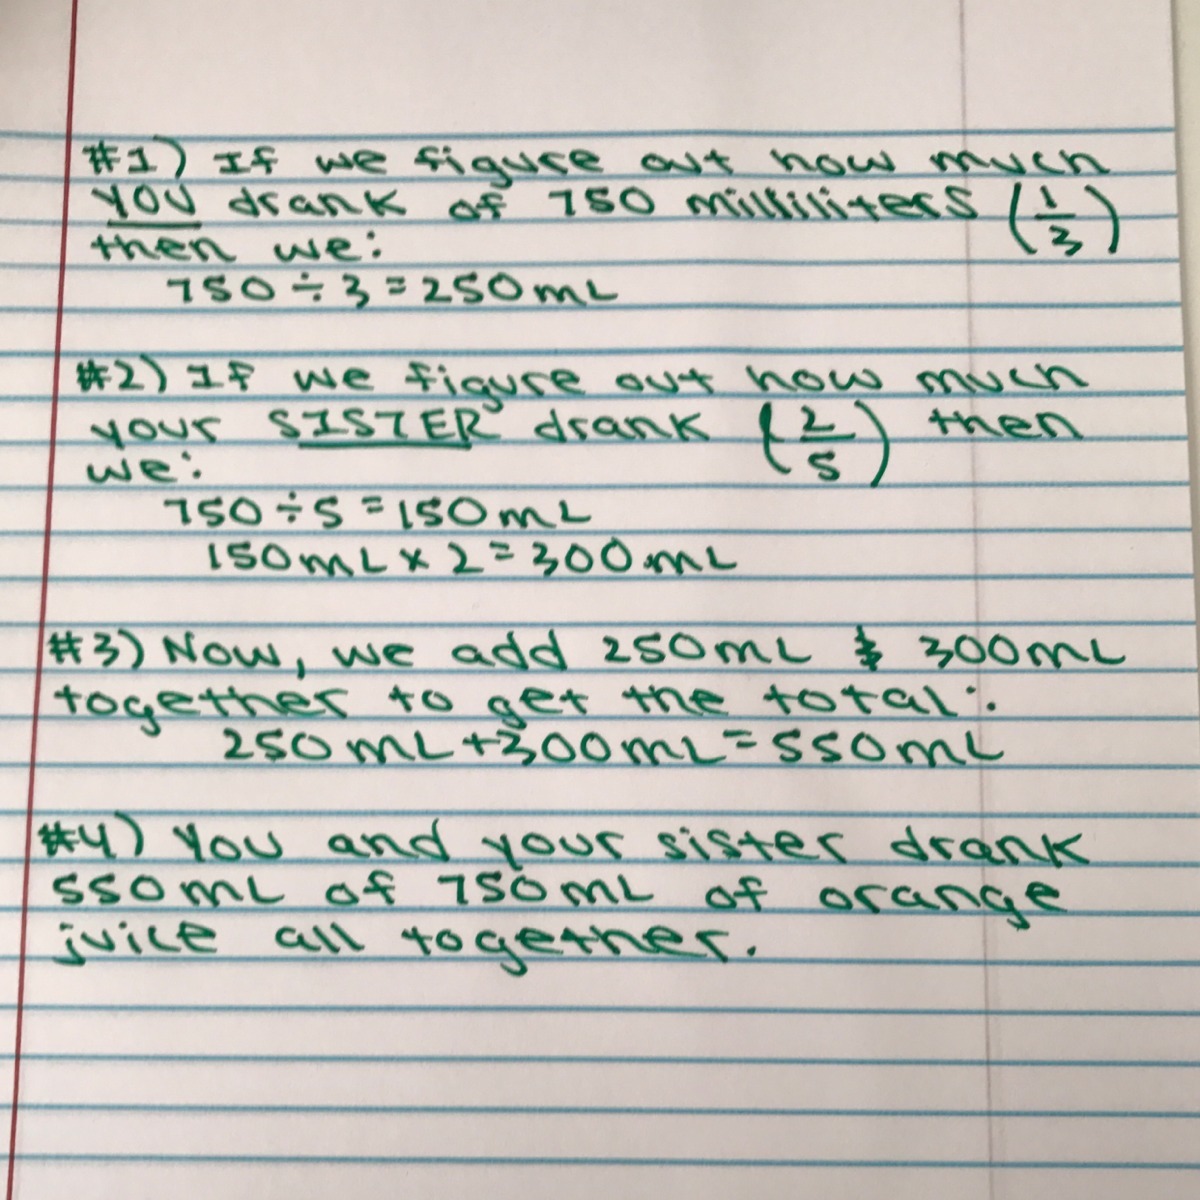 #1) If we figure out how much
YOU drank of 750 milliliters (1/3)
then we:
750 ÷ 3 = 250mL
#2) If we figure out how much
your SISTER drank (2/5) then
we:
750 ÷ 5 = 150mL
150mL x 2 = 300mL
#3) Now, we add 250mL & 300mL
together to get the total:
250mL + 300mL = 550mL
#4) You and your sister drank
550mL of 750mL of orange
juice all together.